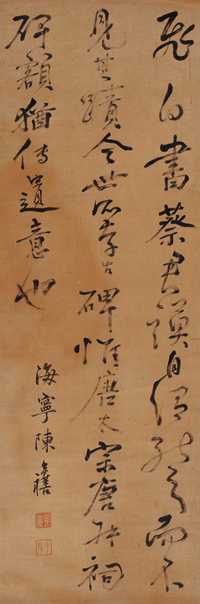 飛白書蔡君謨自謂能之而不
見其蹟今世所存古碑惟唐太宗唐叔祠
碑額猶傳遺意也
海寧陳奕禧